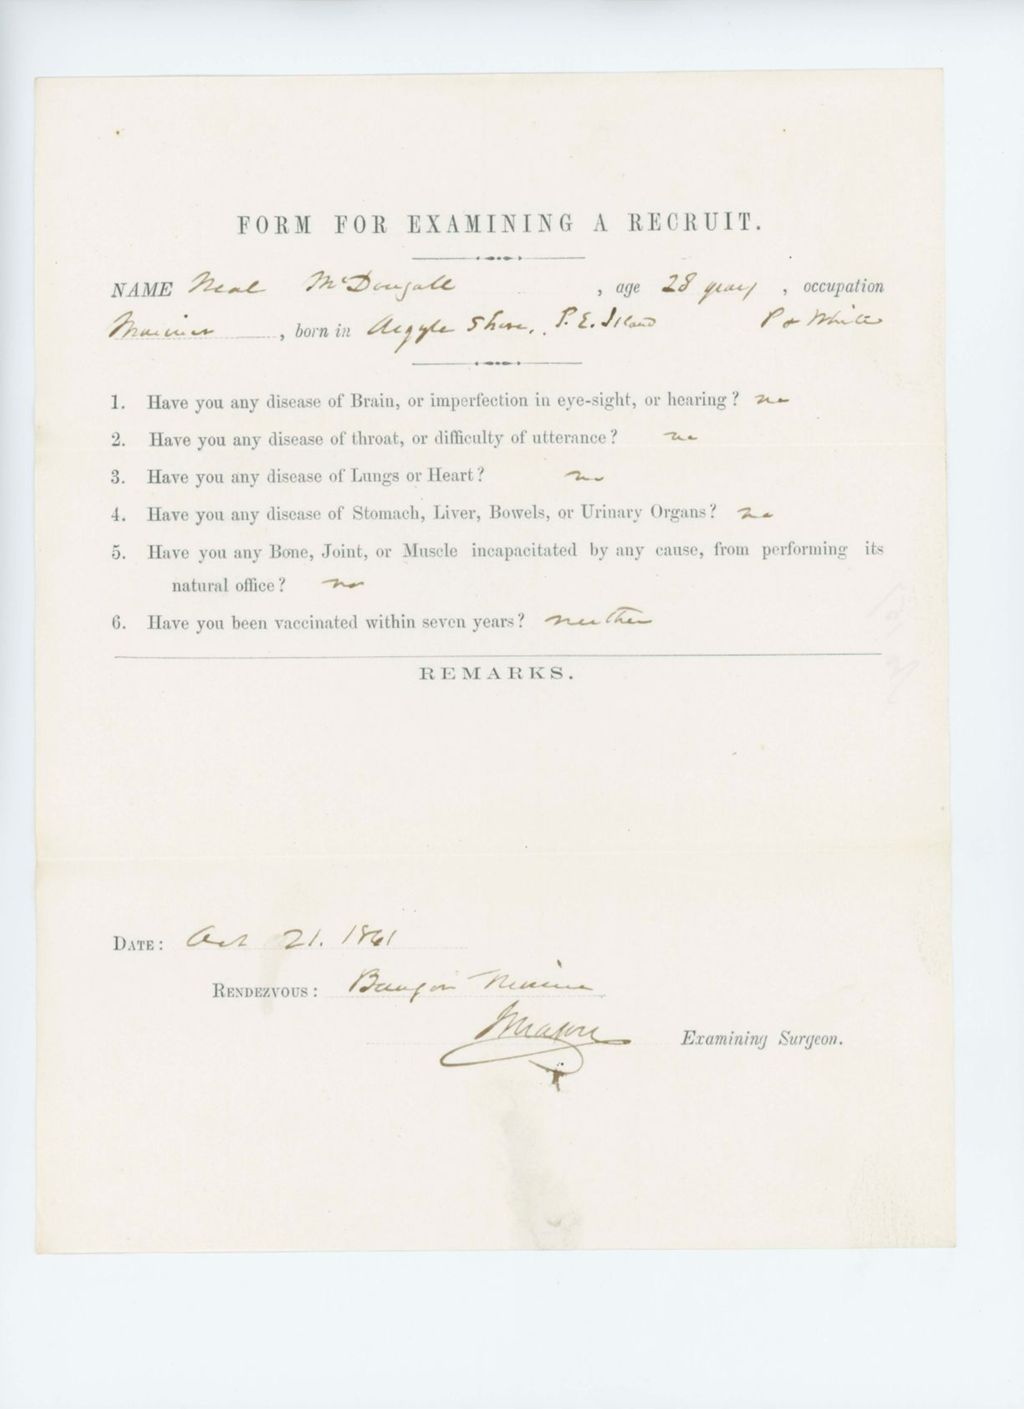 FORM FOR EXAMINING A RECRUIT.
NAME Neal McDougall , age 28 years , occupation
Mariner , born in Argyle Shore, P. E. Island White
1. Have you any disease of Brain, or imperfection in eye-sight, or hearing? no
2. Have you any disease of throat, or difficulty of utterance? no
3. Have you any disease of Lungs or Heart? no
4. Have you any disease of Stomach, Liver, Bowels, or Urinary Organs? no
5. Have you any Bone, Joint, or Muscle incapacitated by any cause, from performing its
natural office? no
6. Have you been vaccinated within seven years? neither
REMARKS.
DATE: Oct 21. 1861
RENDEZVOUS: Bangor Maine
Mason Examining Surgeon.